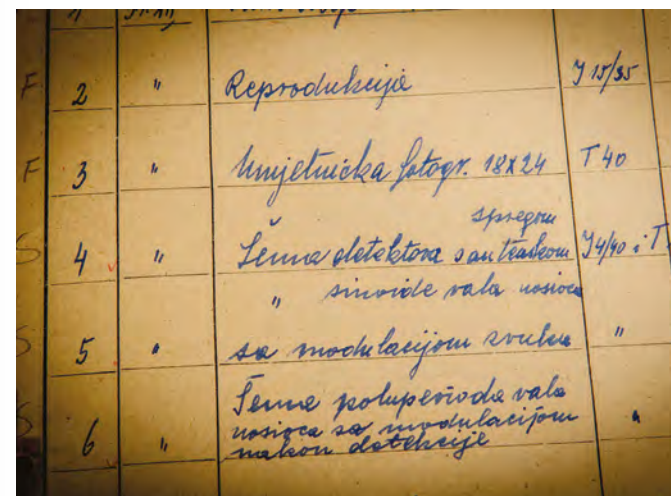 F 2 " Reprodukcije J 15/35
F 3 " Umjetnička fotogr. 18x24 T 40
spregom
S 4 " Šema detektora sa J 4/40 i T
" sinoide vala nosioca
S 5 " sa modulacijom zvuka "
Šema poluperioda vala
nosioca sa modulacijom
S 6 " nakon detekcije "